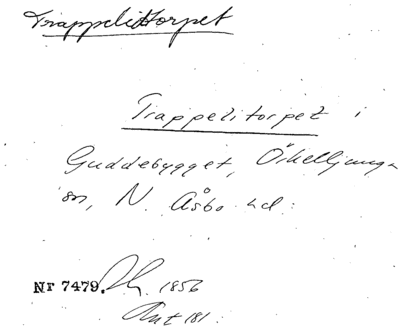 Trappelittorpet
Trappelitorpet i
Guddebygget, Örkelljunga
sn, N. Åsbo hd.
Nr 7479. 1856
Ant 181.